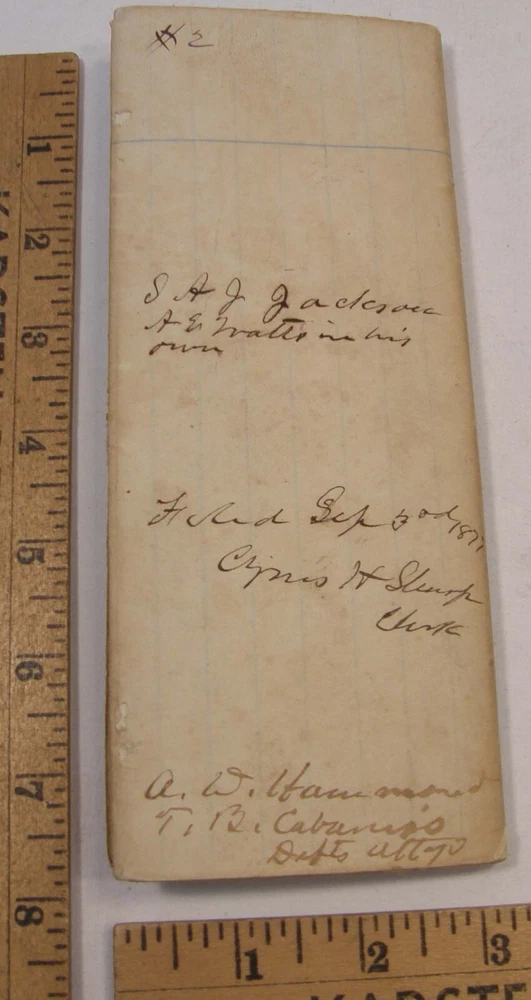 # 2
S A J Jackson
A E Watts in his
own
Filed Sep 3rd 1877
Cyrus H Sharp
Clerk
A. W. Hammond
T. B. Cabaniss
Defts attys
1
2
3
4
5
6
7
8
1 2 3